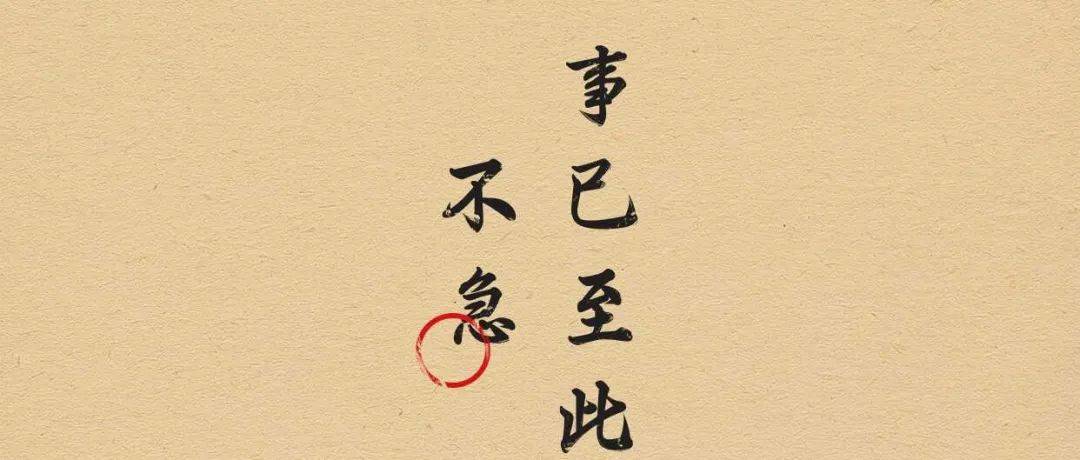 事已至此
不急